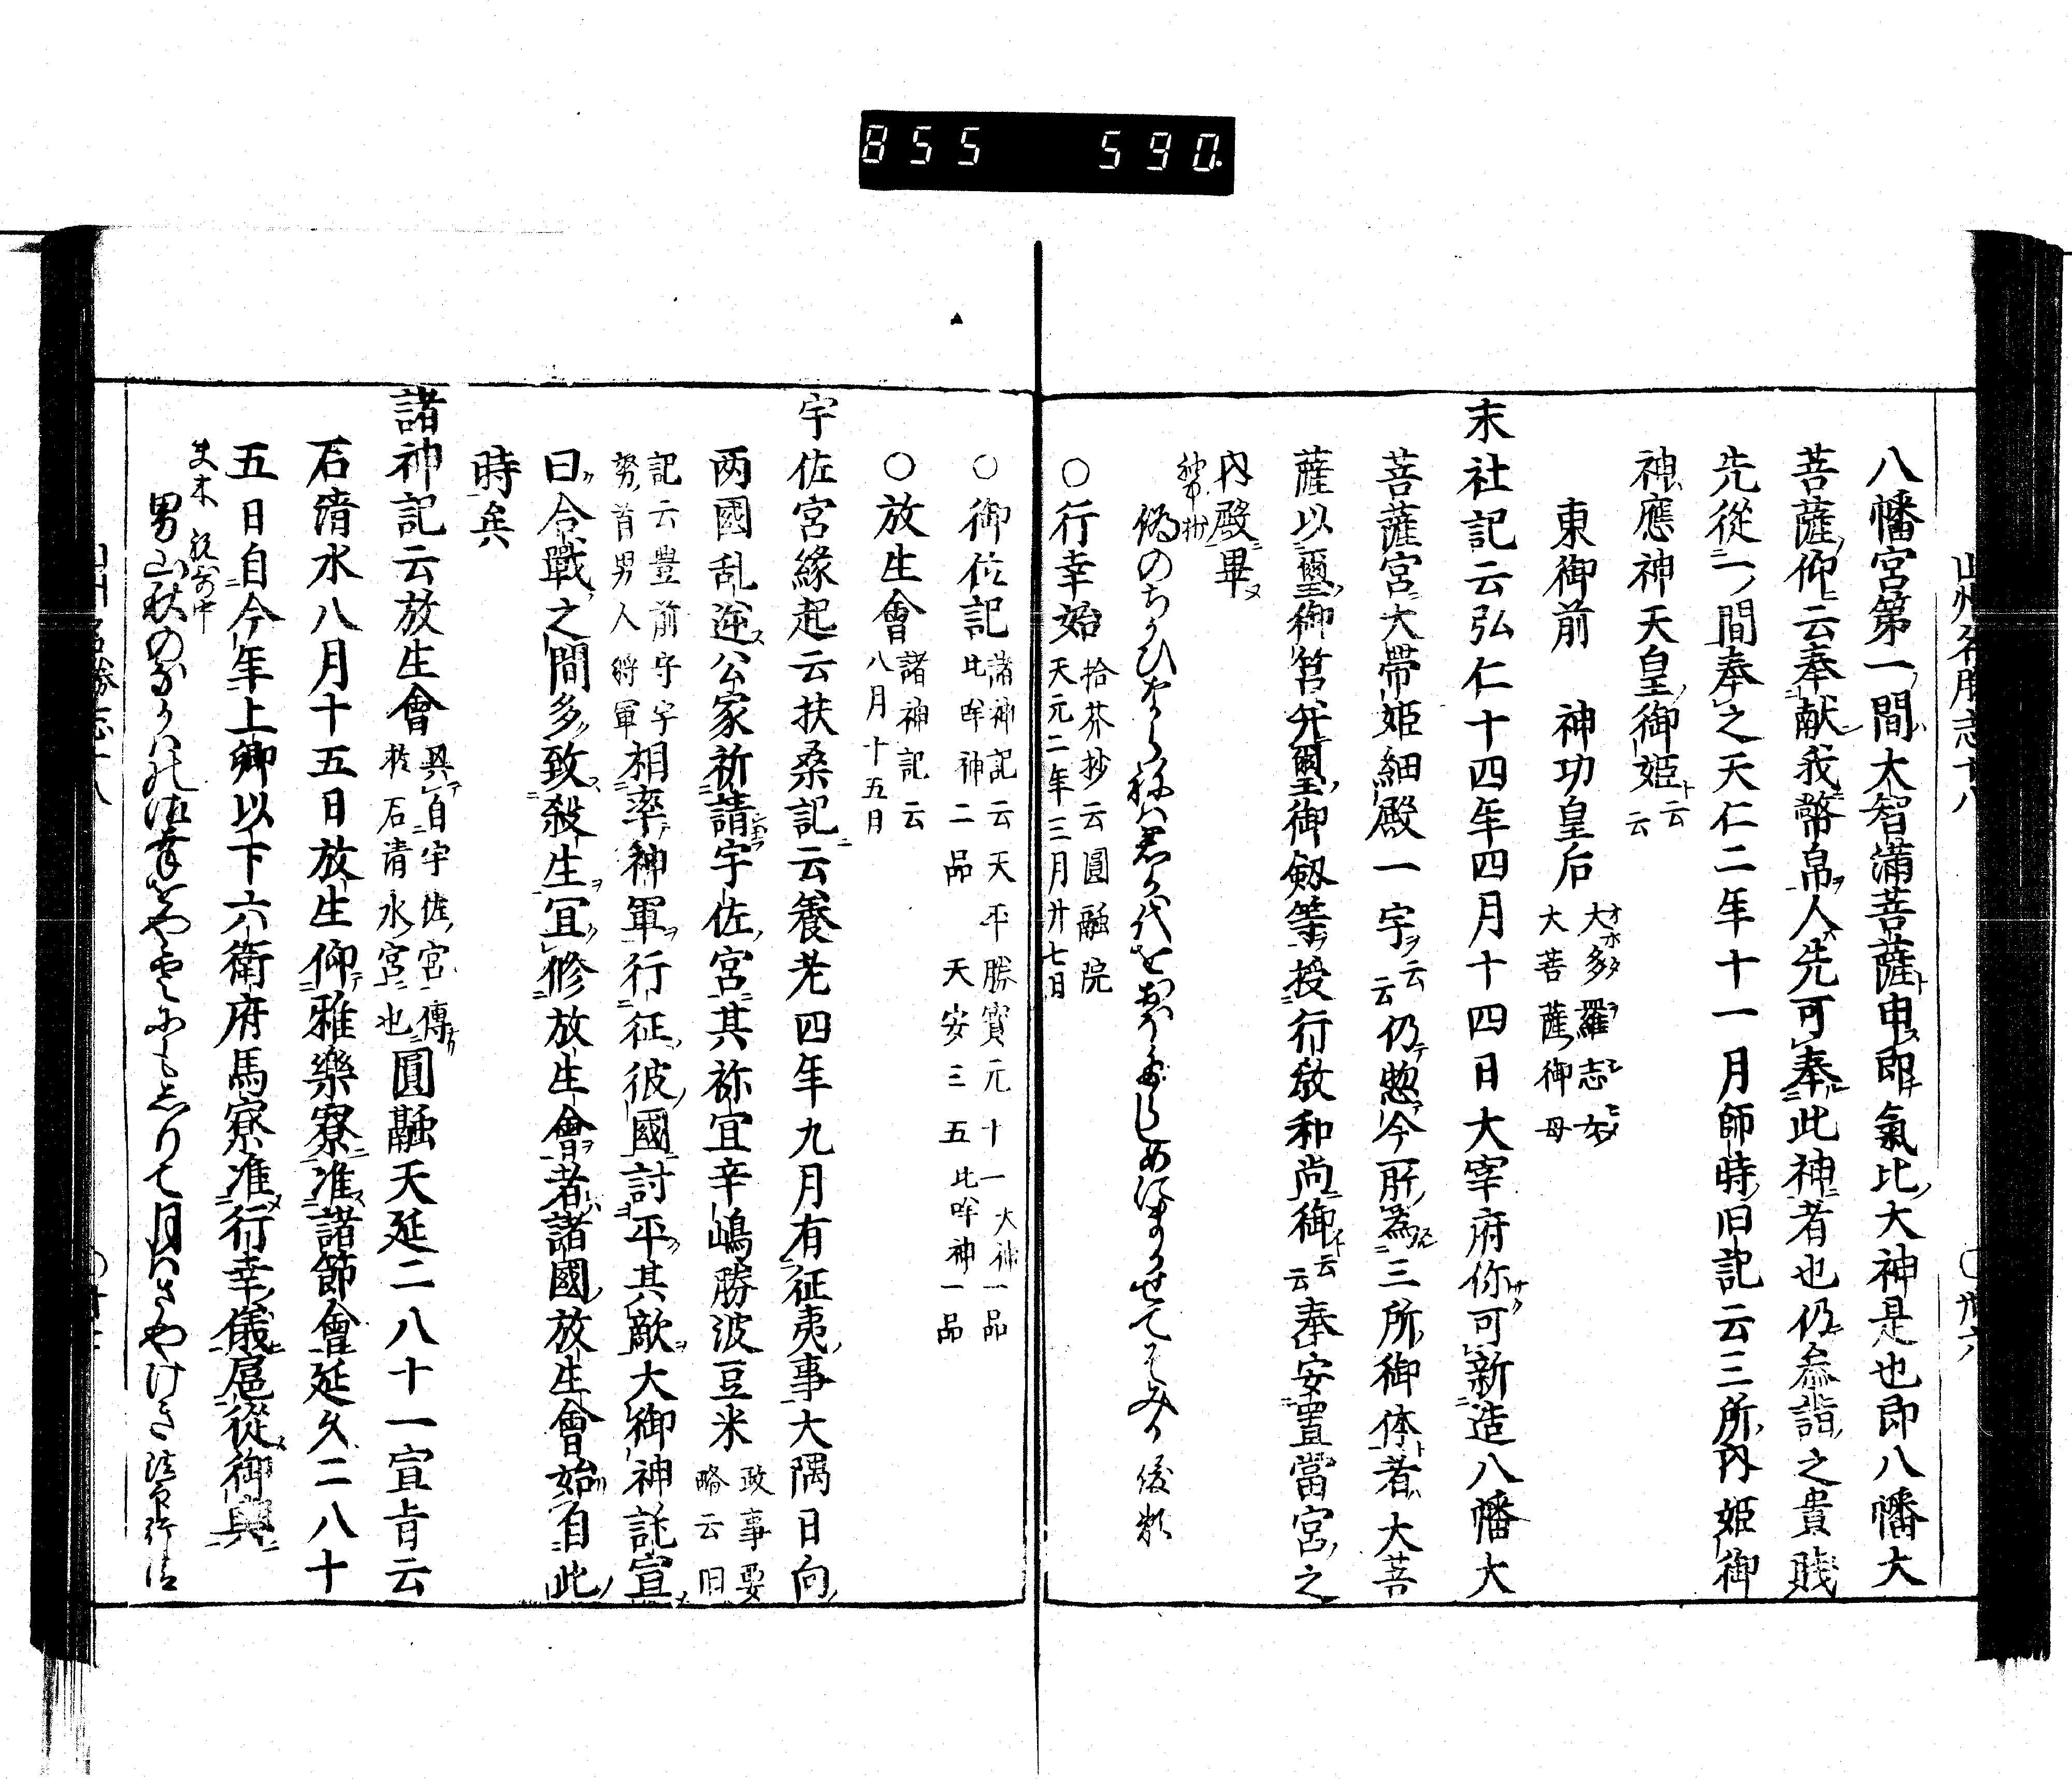 855 590.
八幡宮第一間大智満菩薩申即氣比大神是也即八幡大
菩薩仰云奉献我幣帛人先可奉此神者也仍叅詣之貴賤
先從一間奉之天仁二年十一月師時旧記云三所内姫御
神應神天皇御姫ト云云
東御前 神功皇后 大多羅志女
大菩薩御母
末社記云弘仁十四年四月十四日大宰府你可新造八幡大
菩薩宮大帶姫細殿一宇云云仍惣今所為三所御体者大菩
薩以璽御筥并璽御劔等授行教和尚御云云奉安置當宮之
内殿畢
偽のちかひならねは君か代を
○行幸始 拾芥抄云圓融院
天元二年三月廿七日
○御位記 諸神記云天平勝寶元十一大神一品
比咩神二品 天安三五比咩神一品
○放生會 諸神記云
八月十五月
宇佐宮緣起云扶桑記云養老四年九月有征夷事大隅日向
两國乱逆公家祈請宇佐宮其祢宜辛嶋勝波豆米 政事要
略云旧
記云豊前守宇
努首男人將軍 相率神軍行征彼國討平其敵大御神託宣
曰合戰之間多致殺生宜修放生會者諸國放生會始自此
時矣
諸神記云放生會 興自宇佐宮傳
石清水宮也 圓融天延二八十一宣旨云
石清水八月十五日放生仰雅樂寮准諸節會延久二八十
五日自今年上卿以下六衛府馬寮准行幸儀扈從御輿
男山秋の 月はさやけき